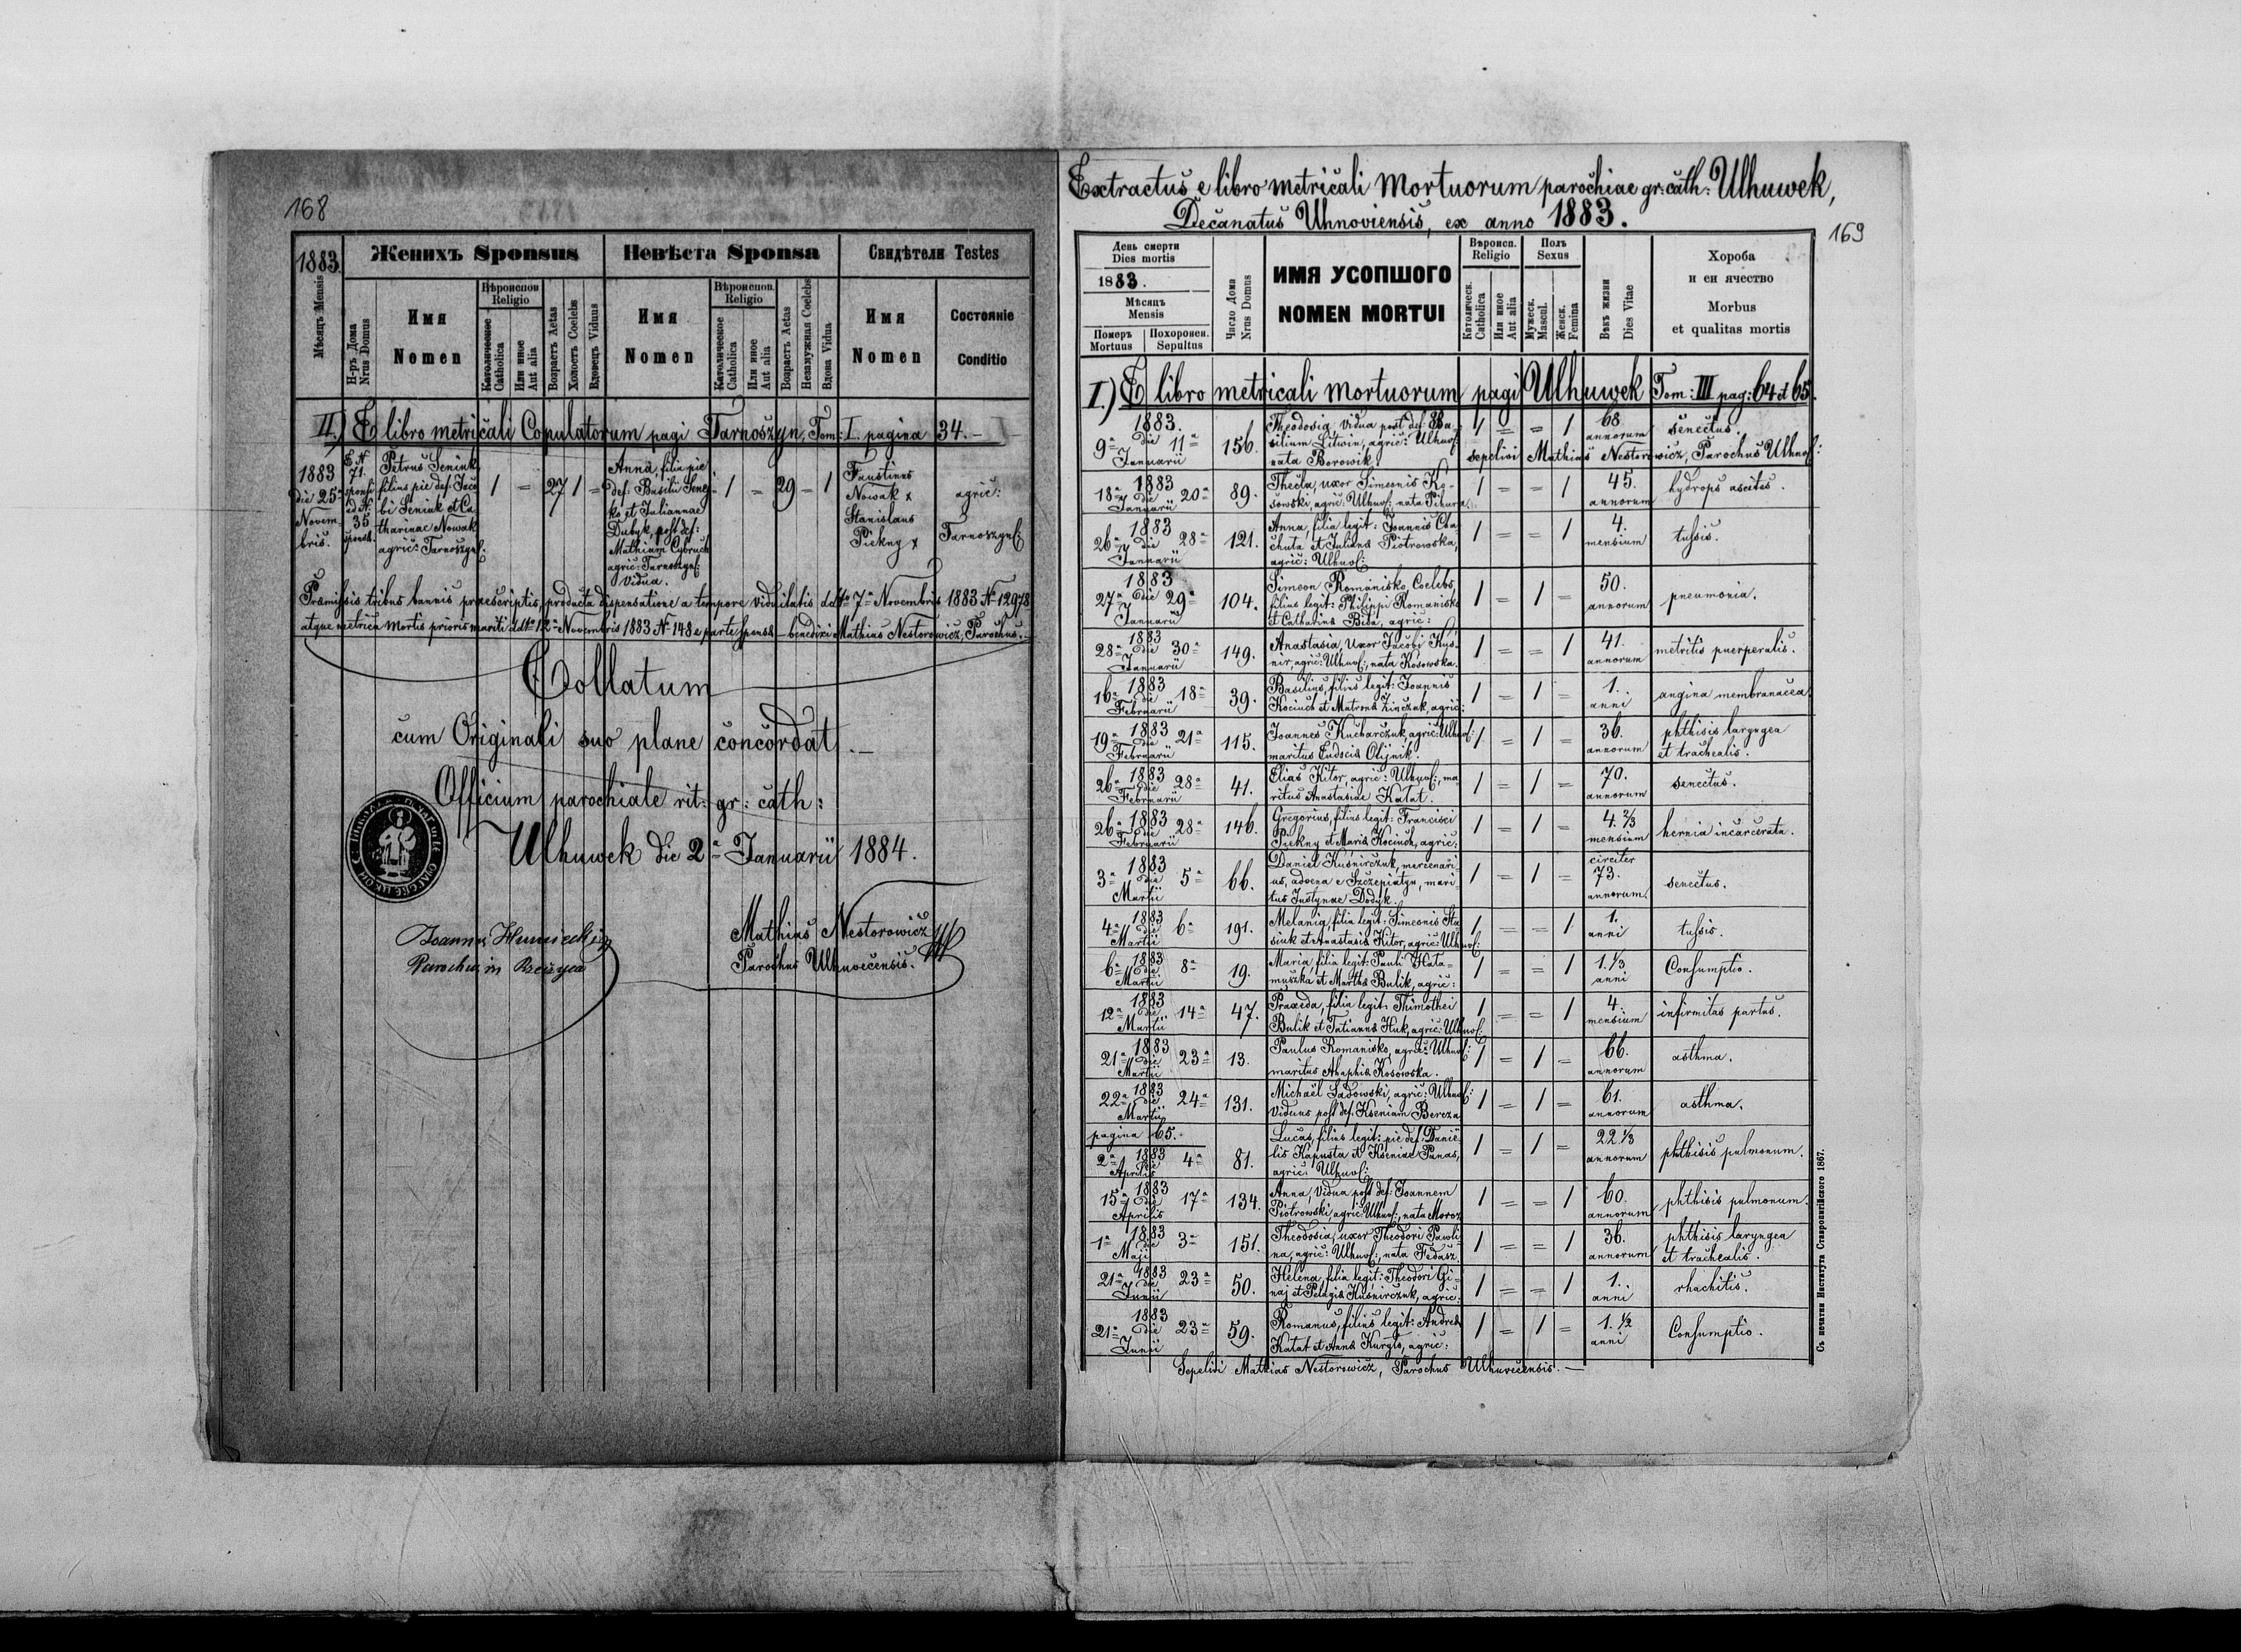 168
1883.
Мѣсяцъ Mensis
Женихъ Sponsus
Невѣста Sponsa
Свидѣтели Testes
Н-ръ Дома
Nrus Domus
Имя
Nomen
Вѣроиспов.
Religio
Католическое
Catholica
Или иное
Aut alia
Возрастъ Aetas
Холостъ Coelebs
Вдовецъ Viduus
Имя
Nomen
Вѣроиспов.
Religio
Католическое
Catholica
Или иное
Aut alia
Возрастъ Aetas
Незамужная Coelebs
Вдова Vidua
Имя
Nomen
Состояніе
Conditio
II.) E libro metricali Copulatorum pagi Tarnoszyn, Tom: I. pagina 34. —
1883
die 25ª
Novem
bris.
E N.
71.
sponsi
ad N.
35
sponsae.
Petrus Seniuk,
filius pie def: Jaco
bi Seniuk et Ca
tharinae Nowak
agric: Tarnoszyn:
1 = 27 1 =
Anna, filia pie
def: Basilii Sene
ko et Juliannae
Dubyk, post def:
Mathiam Cybruch
agric: Tarnoszyn:
vidua.
1 = 29 - 1
Faustinus
Nowak x
Stanislaus
Piekny x
agric:
Tarnoszyn:
Praemissis tribus bannis praescriptis, producta dispensatione a tempore viduitatis ddto 7ª Novembris 1883 Nº 12978
atque metrica mortis prioris mariti ddto 12ª Novembris 1883 Nº 148 e parte sponsae — benedixi Mathias Nestorowicz, Parochus. —
Collatum
cum Originali suo plane concordat. —
Officium parochiale rit: gr: cath:
Ulhuwek die 2ª Januarii 1884.
Mathias Nestorowicz
Parochus Ulhuvecensis.
Joannes
Parochus in Rzeczyca
Extractus e libro metricali Mortuorum parochiae gr: cath: Ulhuwek,
Decanatus Uhnoviensis, ex anno 1883.
169
День смерти
Dies mortis
1883.
Мѣсяцъ
Mensis
Померъ
Mortuus
Похоронен.
Sepultus
Число Дома
Nrus Domus
ИМЯ УСОПШОГО
NOMEN MORTUI
Вѣроисп.
Religio
Католическ.
Catholica
Или иное
Aut alia
Полъ
Sexus
Мужеск.
Mascul.
Женск.
Femina
Вѣкъ жизни
Dies Vitae
Хороба
и еи ячество
Morbus
et qualitas mortis
I.) E libro metricali mortuorum pagi Ulhuwek Tom: III pag: 64 et 65.
1883.
9ª die 11ª
Januarii
156.
Theodosia, vidua post def: Ba
silium Litwin, agric: Ulhuv:
nata Borowik.
1 = = 1
68
annorum
senectus.
sepelivi Mathias Nestorowicz, Parochus Ulhuv:
1883
18ª die 20ª
Januarii
89.
Thecla, uxor Simeonis Ko-
sowski, agric: Ulhuv: nata Pihura.
1 = = 1
45.
annorum
hydrops ascites.
1883
26ª die 28ª
Januarii
121.
Anna, filia legit: Joannis Cha
chuta et Juliana Piotrowska,
agric: Ulhuv:
1 = = 1
4.
mensium
tussis.
1883
27ª die 29ª
Januarii
104.
Simeon Romanisko, Coelebs,
filius legit: Philippi Romanisko
et Catharina Bida, agric:
1 = 1 =
50.
annorum
pneumonia.
1883
28ª die 30ª
Januarii
149.
Anastasia, uxor Jacobi Kuś-
nir, agric: Ulhuv:, nata Kosowska.
1 = = 1
41.
annorum
metritis puerperalis.
1883
16ª die 18ª
Februarii
39.
Basilius, filius legit: Joannis
Kociuch et Matrona Zinczuk, agric:
1 = 1 =
1.
anni
angina membranacea.
1883
19ª die 21ª
Februarii
115.
Joannes Kucharczuk, agric: Ulhuv:
maritus Eudocia Olijnik.
1 = 1 =
36.
annorum
phthisis laryngea
et trachealis.
1883
26ª die 28ª
Februarii
41.
Elias Kitor, agric: Ulhuv:, ma
ritus Anastasiae Kałat.
1 = 1 =
70.
annorum
senectus.
1883
26ª die 28ª
Februarii
146.
Gregorius, filius legit: Francisci
Piekny et Maria Kociuch, agric:
1 = 1 =
4. 2/3
mensium
hernia incarcerata.
1883
3ª die 5ª
Martii
66.
Daniel Kuśnirczuk, mercenari-
us, advena e Szczepiatyn, mari-
tus Justynae Dodyk.
1 = 1 =
circiter
73.
annorum
senectus.
1883
4ª die 6ª
Martii
191.
Melania, filia legit: Simeonis Sta
siuk et Anastasia Kitor, agric: Ulhuv:
1 = = 1
1.
anni
tussis.
1883
6ª die 8ª
Martii
19.
Maria, filia legit: Pauli Hała-
muszka et Martha Bulik, agric:
1 = = 1
1. 1/3
anni
Consumptio.
1883
12ª die 14ª
Martii
47.
Praxeda, filia legit: Thimothei
Bulik et Tatianna Huk, agric: Ulhuv:
1 = = 1
4.
mensium
infirmitas partus.
1883
21ª die 23ª
Martii
13.
Paulus Romanisko, agric: Ulhuv:
maritus Ahaphia Kosowska.
1 = 1 =
66.
annorum
asthma.
1883
22ª die 24ª
Martii
131.
Michaël Sadowski, agric: Ulhuv:
viduus post def: Kseniam Bereza
1 = 1 =
61.
annorum
asthma.
pagina 65.
1883
2ª die 4ª
Aprilis
81.
Lucas, filius legit: pie def: Danië
lis Kapusta et Kseniae Panas,
agric: Ulhuv:
1 = 1 =
22 1/3
annorum
phthisis pulmonum.
1883
15ª die 17ª
Aprilis
134.
Anna, vidua post def: Joannem
Piotrowski, agric: Ulhuv:, nata Moroz
1 = = 1
60.
annorum
phthisis pulmonum.
1883
1ª die 3ª
Maji
151.
Theodosia, uxor Theodori Pawli
na, agric: Ulhuv:, nata Fedasz.
1 = = 1
36.
annorum
phthisis laryngea
et trachealis.
1883
21ª die 23ª
Junii
50.
Helena, filia legit: Theodori Gi-
naj et Pelagia Kuśnirczuk, agric:
1 = = 1
1.
anni
rhachitis.
1883
21ª die 23ª
Junii
59.
Romanus, filius legit: Andrea
Kałat et Anna Kurylo, agric:
1 = 1 =
1. 1/2
anni
Consumptio.
Sepelivi Mathias Nestorowicz, Parochus Ulhuvecensis. —
Съ печатни Института Ставропигійского 1867.